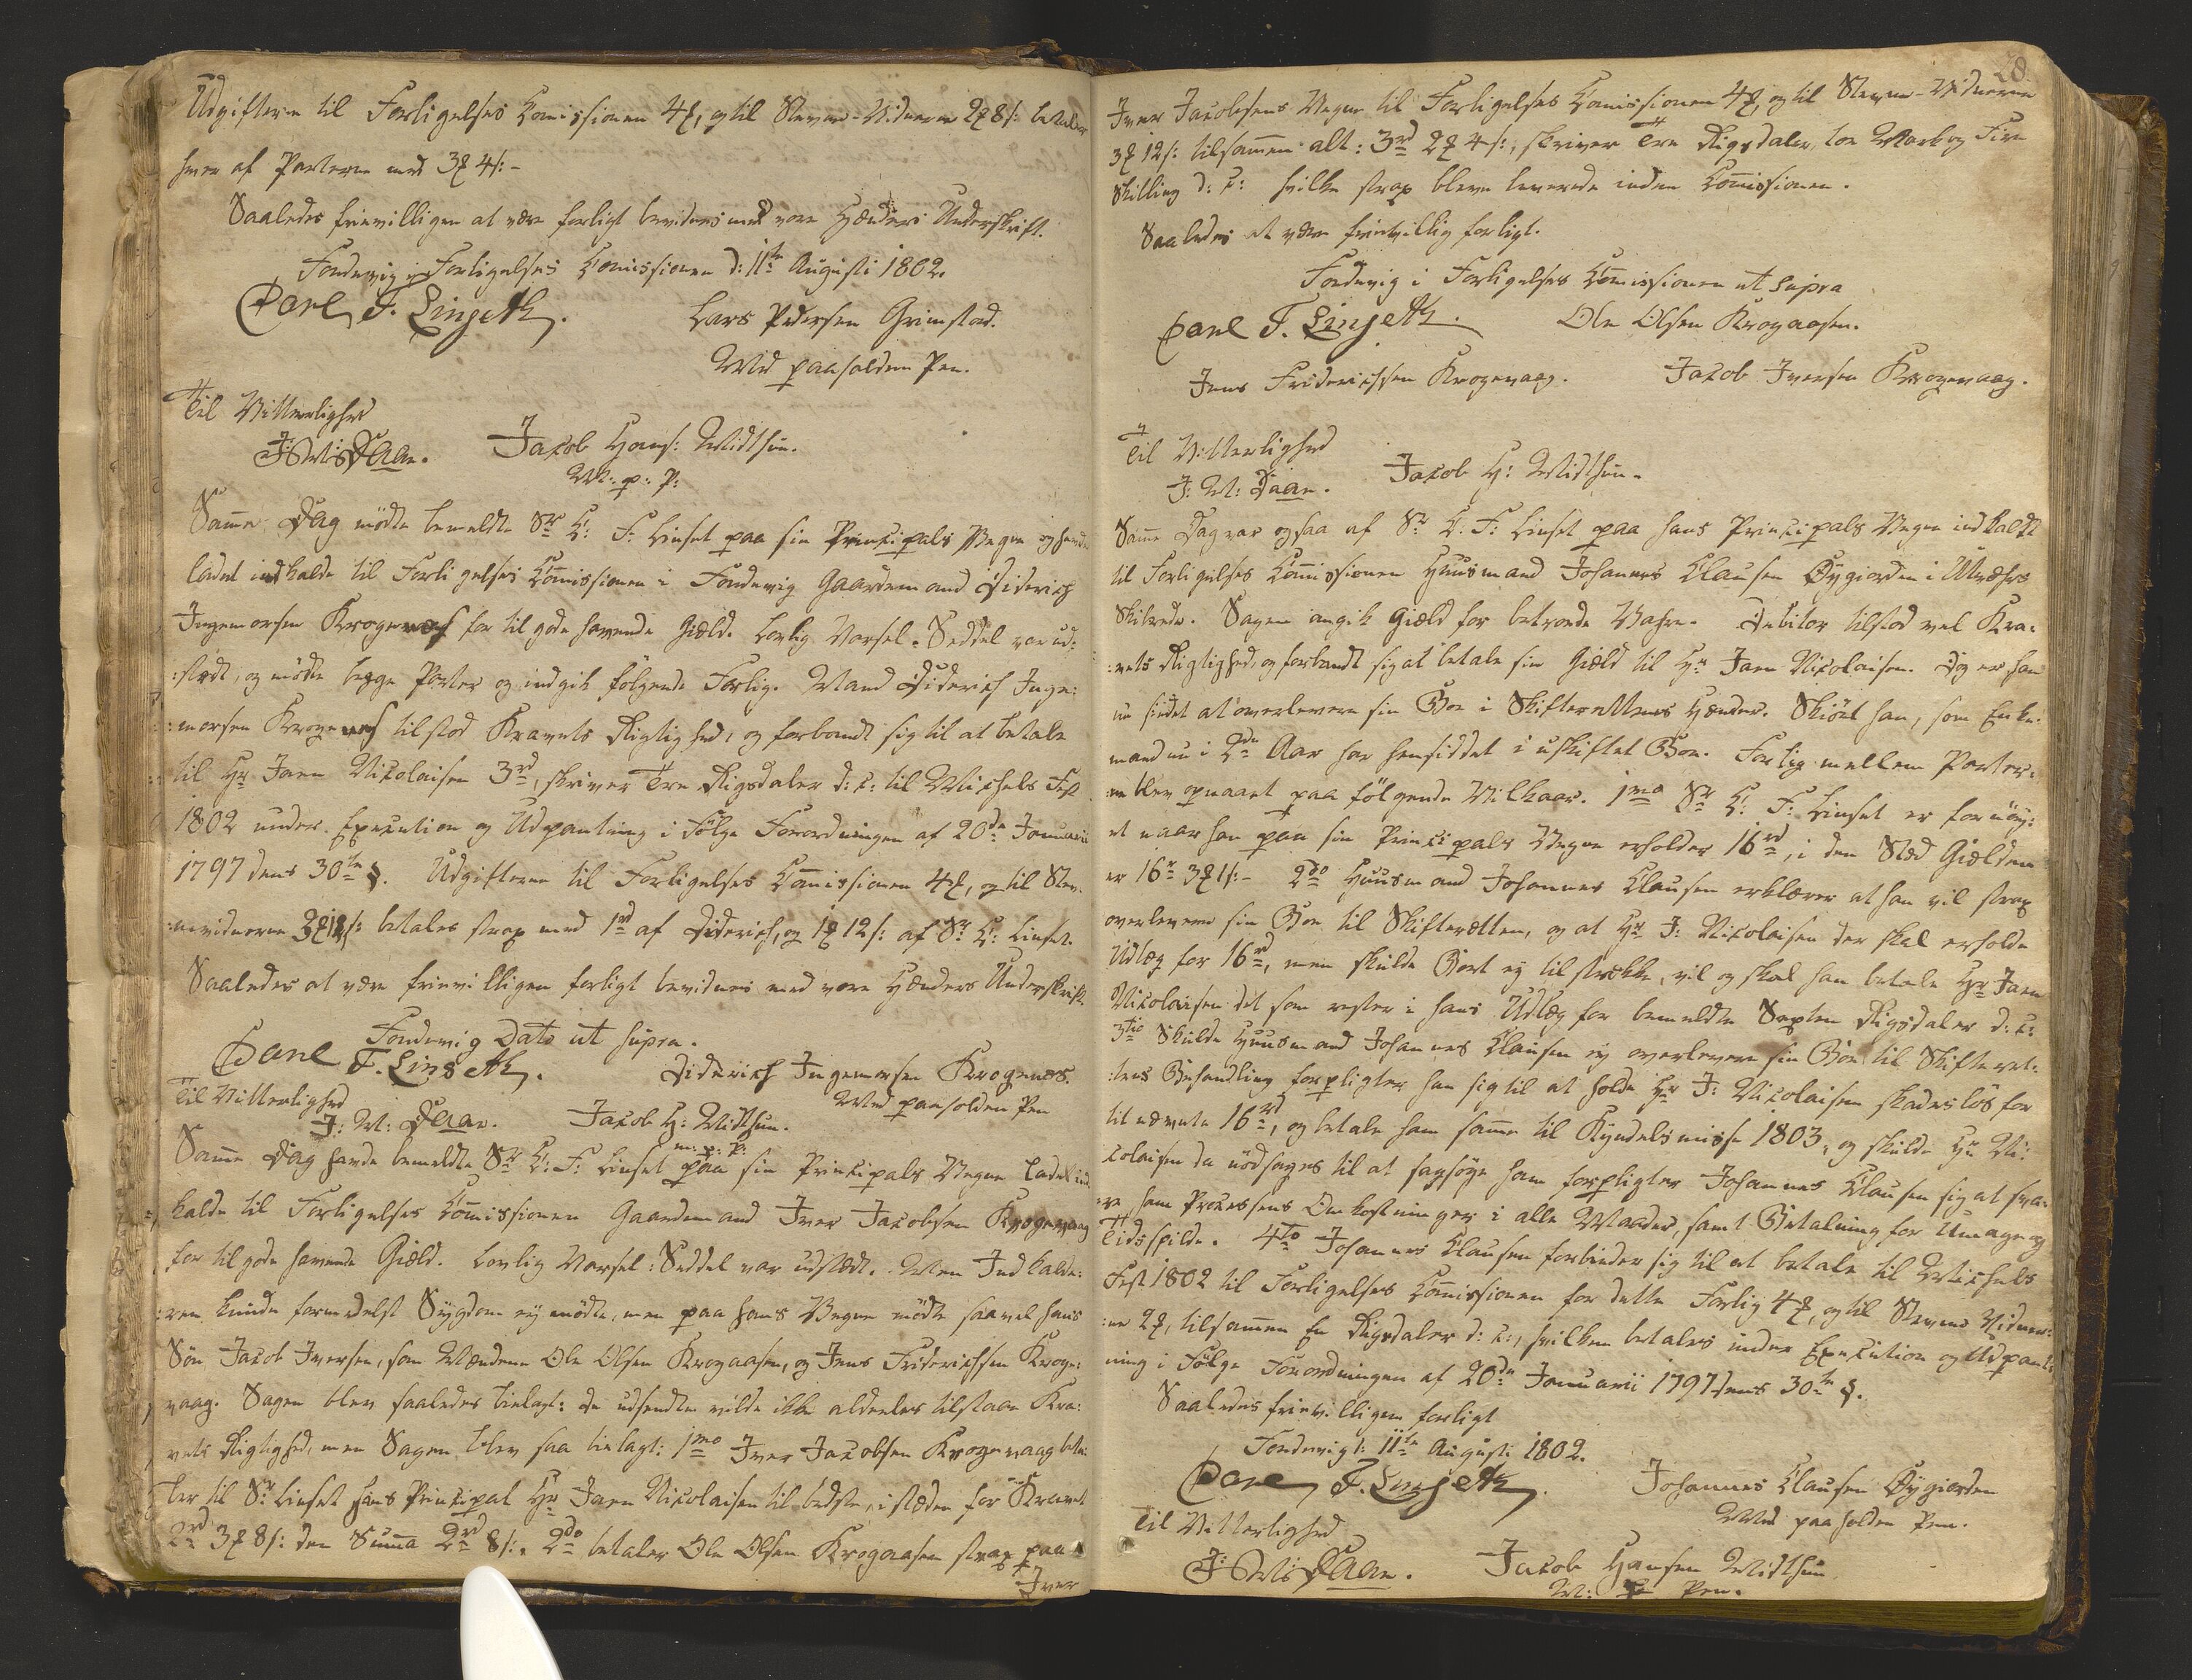 Udgifterne til Forligelses Comissionen 4 ℳ, og til Stevne-Vidnerne 2 ℳ 8 s: betaler
hver af Parterne med 3 ℳ 4 s: -
Saaledes frievilligen at være forligt bevidnes med vore Hænders Underskrift.
Fondevig i Forligelses Comissionen d: 11te Augusti 1802.
Carl F. Linseth.
Lars Pedersen Grimstad.
Med paaholden Pen.
Til Vitterlighed
J: M: Daae.
Jacob Hans: Midthun.
M: p: P:
Samme Dag mødte bemeldte Sr C: F: Linset paa sin Principals Vegne og havde
ladet indkalde til Forligelses Commissionen i Fondevig Gaardemand Diderich
Ingemorsen Krogenæs for til gode havende Giæld. Lovlig Varsel-Seddel var ud-
:stædt, og mødte begge Parter og indgik følgende Forlig. Mand Diderich Inge:
:morsen Krogenæs tilstod Kravets Rigtighed, og forbandt sig til at betale
til Hr Jaen Nicolaisen 3rd, skriver Tre Rigsdaler d: c: til Michels Fest
1802 under Execution og Udpantning i Følge Forordningen af 20de Januarii
1797 dens 30te §. Udgifterne til Forligelses Commissionen 4 ℳ, og til Stev-
:nevidnerne 3 ℳ 12 s: betales strax med 1rd af Diderich, og 1 ℳ 12 s: af Sr C: Linset.
Saaledes at være frievilligen forligt bevidnes med vore Hænders Underskrift.
Fondevig Dato ut supra.
Carl F. Linseth.
Diderich Ingemorsen Krogenæs.
Med paaholden Pen
Til Vitterlighed
J: M: Daae.
Jacob H: Midthun.
m: p: P:
Samme Dag havde bemeldte Sr C: F: Linset paa sin Principals Vegne ladet ind-
kalde til Forligelses Commissionen Gaardemand Iver Jacobsen Krogevaag
for til gode havende Giæld. Lovlig Varsel-Seddel var udstædt. Men Indkalde:
:ren kunde formedelst Sygdom ej møde, men paa hans Vegne mødte saavel hans
Søn Jacob Iversen, som Mændene Ole Olsen Krogaasen, og Jens Friderichsen Kroge-
vaag. Sagen blev saaledes bielagt: De udsendte vilde ikke aldeeles tilstaae Kra:
vets Rigtighed, men Sagen blev saa bielagt: 1mo Iver Jacobsen Krogevaag beta-
ler til Sr Linset hans Principal Hr Jaen Nicolaisen til bedste, i stæden for Kravet
2rd 3 ℳ 8 s: den Summa 2rd 8 s:. 2do betaler Ole Olsen Krogaasen strax paa
Iver
28.
Iver Jacobsens Vegne til Forligelses Comissionen 4 ℳ, og til Stevne-Vidnerne
3 ℳ 12 s: tilsammen alt: 3rd 2 ℳ 4 s:, skriver Tre Rigsdaler, toe Mark og Fire
Skilling d: c: hvilke strax bleve leverede inden Commissionen.
Saaledes at være frievillig forligt.
Fondevig i Forligelses Commissionen ut supra
Carl F. Linseth.
Ole Olsen Krogaasen.
Jens Friderichsen Krogevaag.
Jacob Iversen Krogevaag.
Til Vitterlighed
J: M: Daae.
Jacob H: Midthun.
Samme Dag var ogsaa af Sr C: F: Linset paa hans Principals Vegne indkaldt
til Forligelses Commissionen Huusmand Johannes Clausen Øygiorden i
Skibrede. Sagen angik Giæld for betroede Vahre. Debitor tilstod vel Kra-
:vets Rigtighed, og forbandt sig at betale sin Giæld til Hr Jaen Nicolaisen. Dog er han
nu sindet at overlevere sin Boe i Skifterettens Hænder. Skiønt han, som Enke-
mand nu i 2de Aar har hensiddet i uskiftet Boe. Forlig mellem Parter-
:ne blev opnaaet paa følgende Vilkaar. 1mo Sr C: F: Linset er fornøy-
et naar han paa sin Principals Vegne erholder 16rd, i den Sted Giælden
er 16r 3 ℳ 1 s: - 2do Huusmand Johannes Clausen erklærer at han vil strax
overlevere sin Boe til Skifteretten, og at Hr J: Nicolaisen der skal erholde
Udlæg for 16rd, men skulde Boet ej tilstrække, vil og skal han betale Hr Jaen
Nicolaisen det som rester i hans Udlæg for bemeldte Sexten Rigsdaler d: c:
3tio Skulde Huusmand Johannes Clausen ej overlevere sin Boe til Skifteret-
:tens Behandling forpligter han sig til at holde Hr J: Nicolaisen skadesløs for
de nævnte 16rd, og betale ham samme til Kyndelsmisse 1803, og skulde Hr Ni-
colaisen da nødsages til at sagsøge ham forpligter Johannes Clausen sig at sva-
re ham Processens Omkostninger i alle Maader, samt Betalning for Umage og
Tidsspilde. 4to Johannes Clausen forbinder sig til at betale til Michels
Fest 1802 til Forligelses Commissionen for dette Forlig 4 ℳ, og til Stevne Vidner-
:ne 2 ℳ, tilsammen En Rigsdaler d: c:, hvilken betales under Execution og Udpant-
ning i Følge Forordningen af 20de Januarii 1797 dens 30te §.
Saaledes frievilligen forligt
Fondevig d: 11te Augusti 1802.
Carl F. Linseth.
Johannes Clausen Øygiorden
Med paaholden Pen.
Til Vitterlighed
J: M: Daae.
Jacob Hansen Midthun
M: p: Pen.